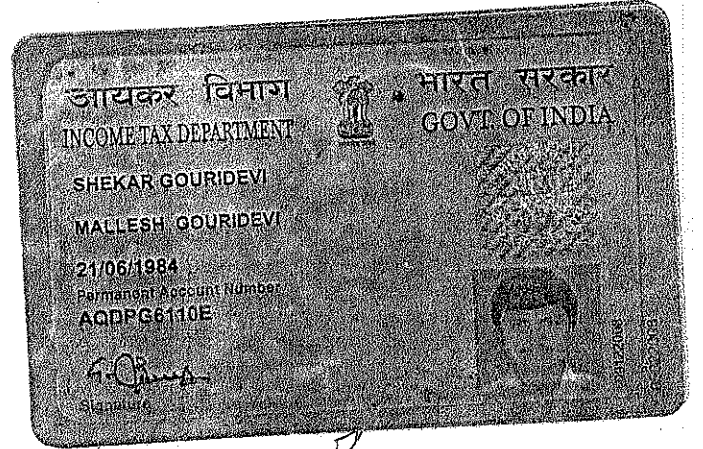 आयकर विभाग
भारत सरकार
INCOME TAX DEPARTMENT
GOVT. OF INDIA
SHEKAR GOURIDEVI
MALLESH GOURIDEVI
21/06/1984
Permanent Account Number
AQDPG6110E
Signature